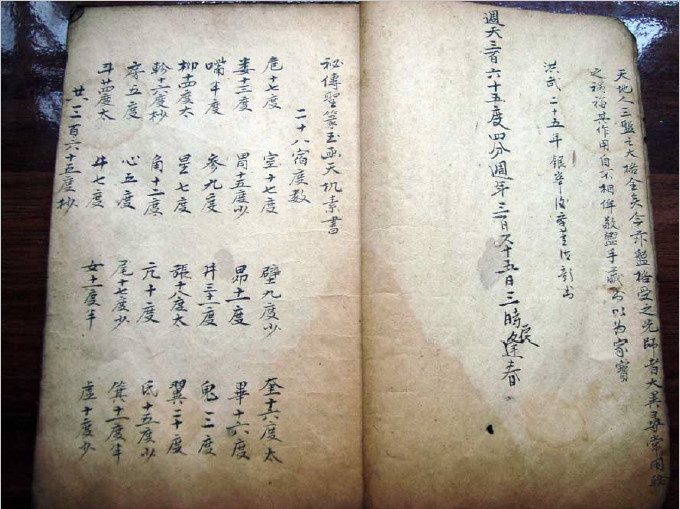 天地人三盤之大格全矣今示盤格受之先師者大異尋常用
之禍福與作用自不相侔敬盥手藏書以為家寶
洪武二十五年
週天三百六十五度四分週年三百六十五日三時
逢春
秘傳聖篆玉函天机素書
二十八宿度數
危十七度 室十七度 壁九度少 奎十六度太
娄十三度 胃十五度少 昴十一度 畢十六度
嘴半度 參九度 井三十一度 鬼二度
柳十四度太 星七度 張十八度太 翼二十度
軫十六度抄 角十二度 亢十度 氐十五度少
房五度 心五度 尾十七度少 箕十一度半
斗廿四度太 牛七度 女十一度半 虛十度少
共三百六十五度抄